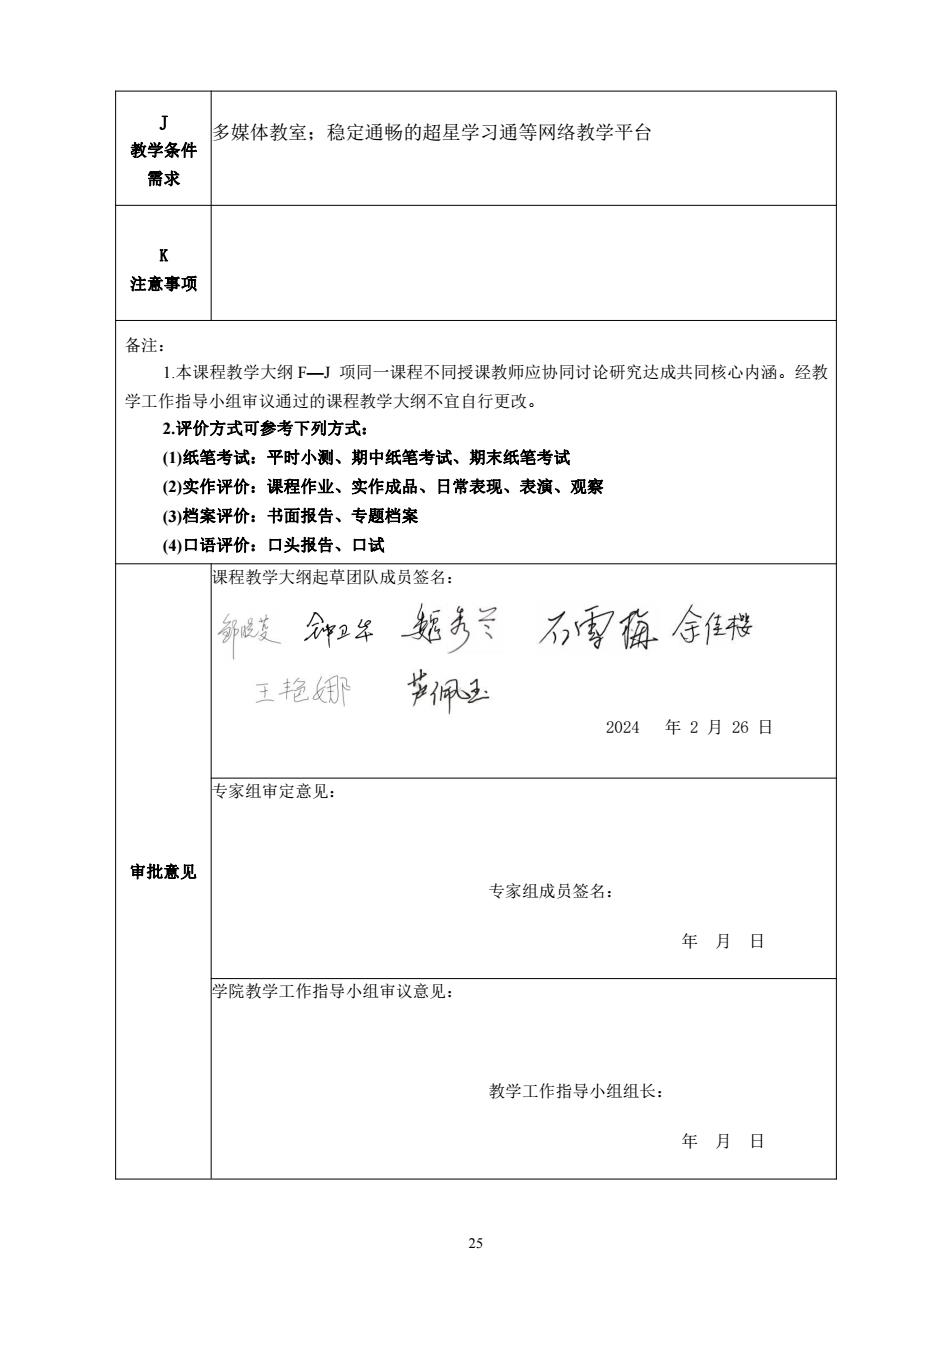 J
教学条件
需求
多媒体教室；稳定通畅的超星学习通等网络教学平台
K
注意事项
备注：
1.本课程教学大纲 F—J 项同一课程不同授课教师应协同讨论研究达成共同核心内涵。经教
学工作指导小组审议通过的课程教学大纲不宜自行更改。
2.评价方式可参考下列方式：
(1)纸笔考试：平时小测、期中纸笔考试、期末纸笔考试
(2)实作评价：课程作业、实作成品、日常表现、表演、观察
(3)档案评价：书面报告、专题档案
(4)口语评价：口头报告、口试
审批意见
课程教学大纲起草团队成员签名：
钟卫华 魏秀兰 石雪梅 余佳樱
王艳娜 芦佩玉
2024 年 2 月 26 日
专家组审定意见：
专家组成员签名：
年 月 日
学院教学工作指导小组审议意见：
教学工作指导小组组长：
年 月 日
25